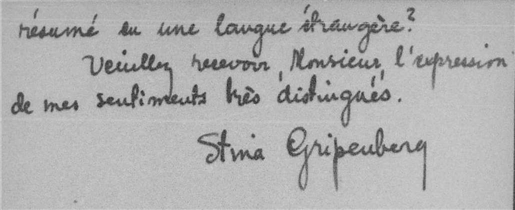 résumé en une langue étrangère?
Veuillez recevoir, Monsieur, l'expression
de mes sentiments très distingués.
Stina Gripenberg